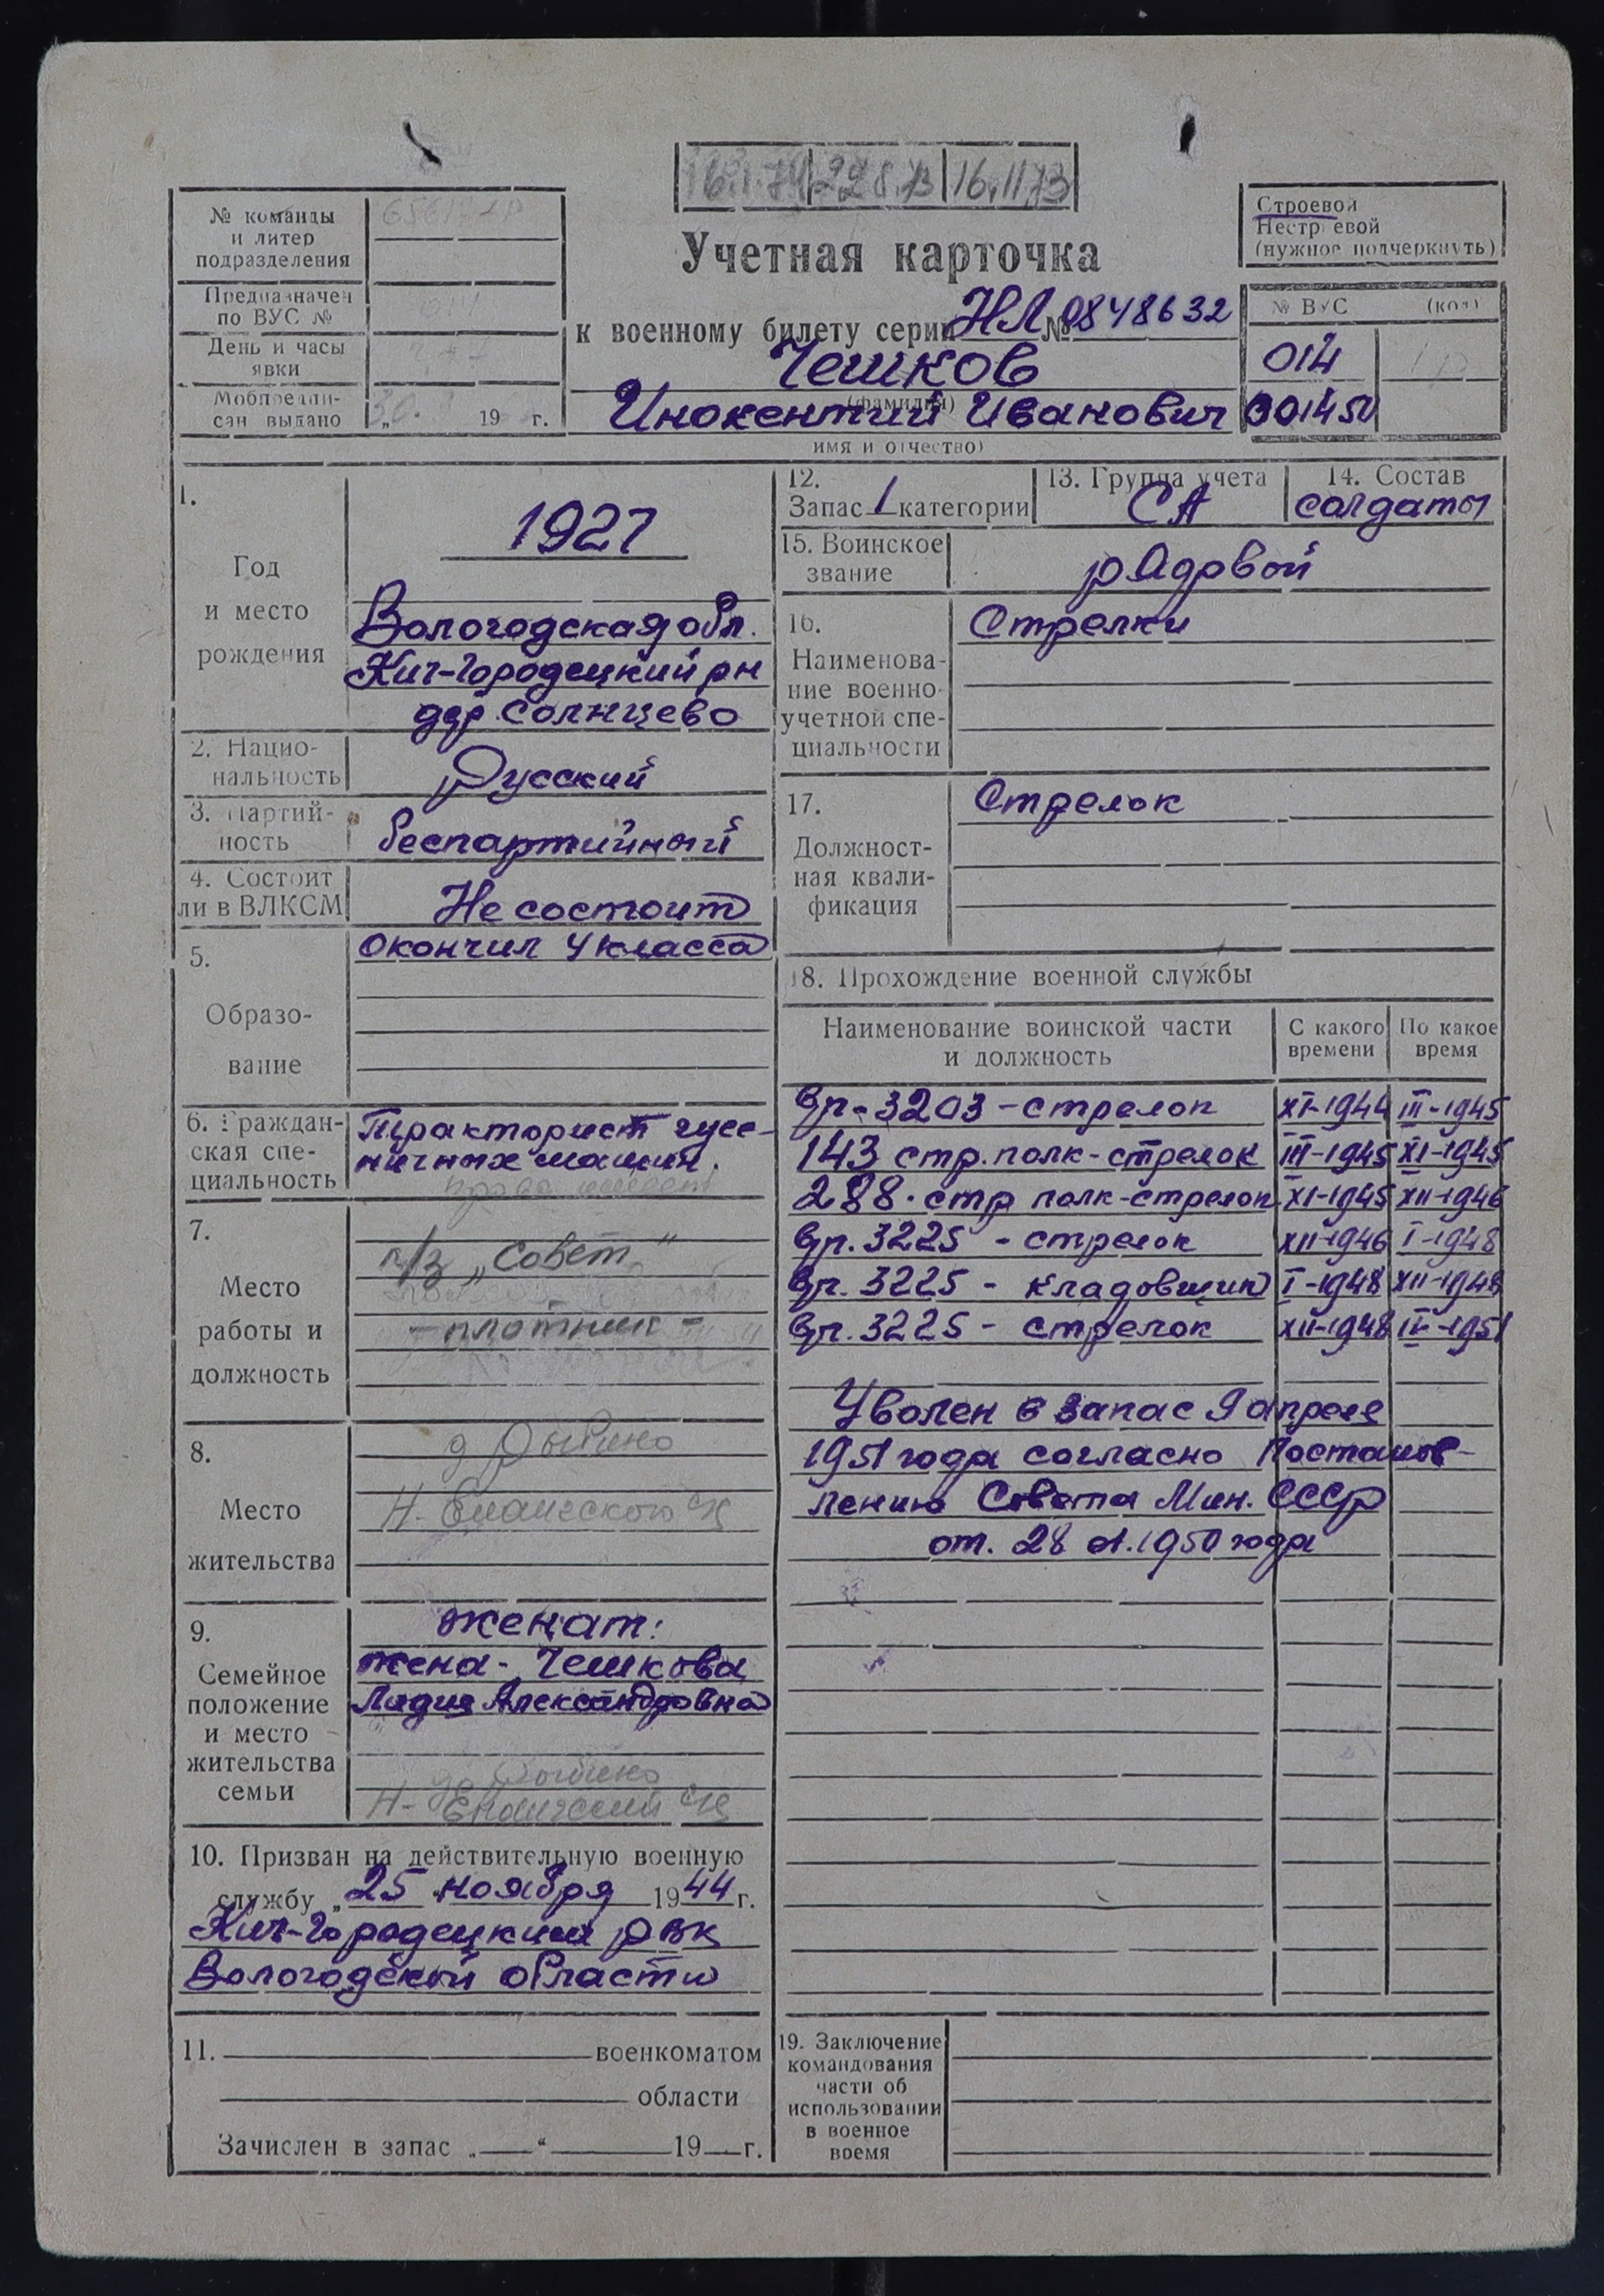 16.11.73
№ команды
и литер
подразделения
Предназначен
по ВУС №
День и часы
явки
Мобпредпи-
сан выдано
„30. 19 г.
Учетная карточка
к военному билету серии НЛ № 0848632
Чешков
(фамилия)
Инокентий Иванович
имя и отчество)
Строевой
Нестроевой
(нужное подчеркнуть)
№ ВУС (код)
014
001450
1.
Год
и место
рождения
1927
Вологодская обл.
Кич-Городецкий рн
дер. Солнцево
2. Нацио-
нальность
Русский
3. Партий-
ность
беспартийный
4. Состоит
ли в ВЛКСМ
Не состоит
5.
Образо-
вание
Окончил 4 класса
6. Граждан-
ская спе-
циальность
Тракторист гусе-
ничных машин.
права имеет
7.
Место
работы и
должность
п/з „Совет"
- плотник -
8.
Место
жительства
д
Н-
с/с
9.
Семейное
положение
и место
жительства
семьи
женат:
жена - Чешкова
Лидия Александровна
Н- с/с
10. Призван на действительную военную
службу „25 ноября 1944 г.
Кич-Городецким РВК
Вологодской области
11. военкоматом
области
Зачислен в запас „ “ 19 г.
12.
Запас 1 категории
13. Группа учета
СА
14. Состав
солдаты
15. Воинское
звание
рядовой
16.
Наименова-
ние военно-
учетной спе-
циальности
Стрелки
17.
Должност-
ная квали-
фикация
Стрелок
18. Прохождение военной службы
Наименование воинской части
и должность
С какого
времени
По какое
время
Вр. 3203 - стрелок XI-1944 III-1945
143 стр. полк - стрелок III-1945 XI-1945
288. стр полк - стрелок XI-1945 XII-1946
Вр. 3225 - стрелок XII-1946 I-1948
Вр. 3225 - кладовщик I-1948 XII-1948
Вр. 3225 - стрелок XII-1948 -1951
Уволен в запас 9 апреля
1951 года согласно Постанов-
лению Совета Мин. СССР
от. 28 1950 года
19. Заключение
командования
части об
использовании
в военное
время